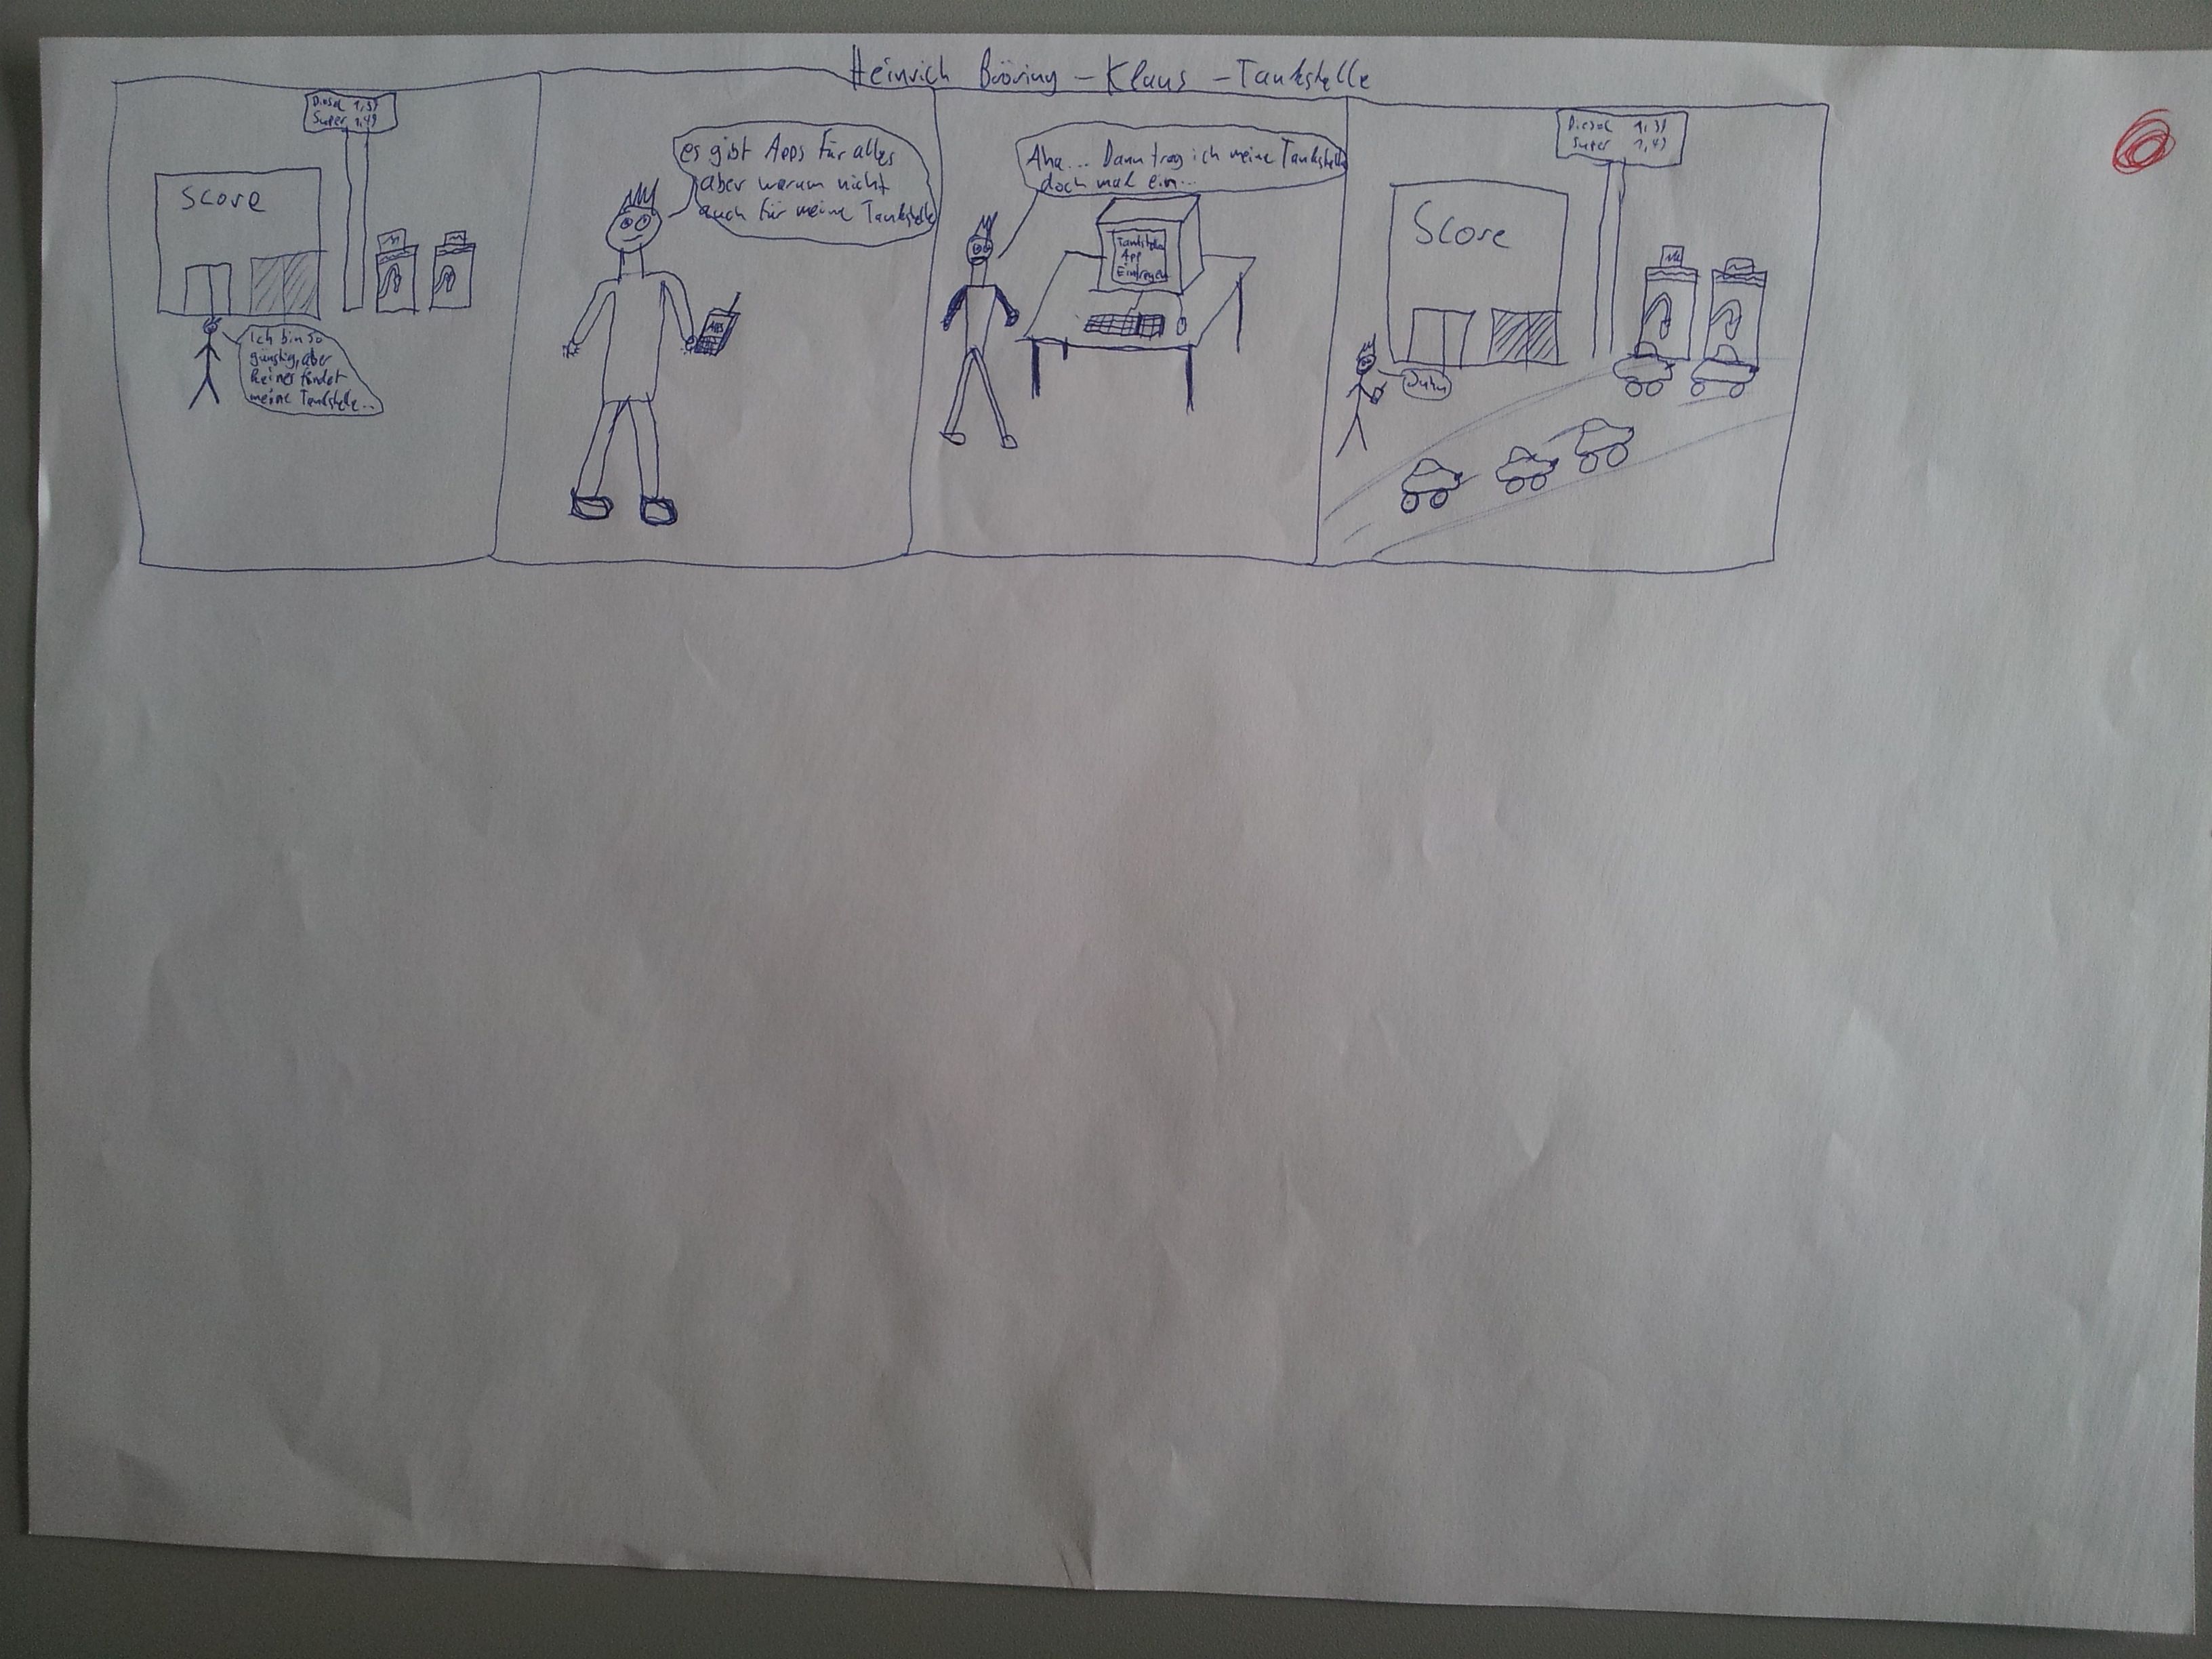 Heinrich Bööring - Klaus - Tankstelle
Diesel 1,39
Super 1,49
Score
Ich bin so
günstig, aber
keiner findet
meine Tankstelle...
es gibt Apps für alles
aber warum nicht
auch für meine Tankstelle
APPS
Aha... Dann trag ich meine Tankstelle
doch mal ein...
Tankstellen
App
Eintragen
Diesel 1,39
Super 1,49
Score